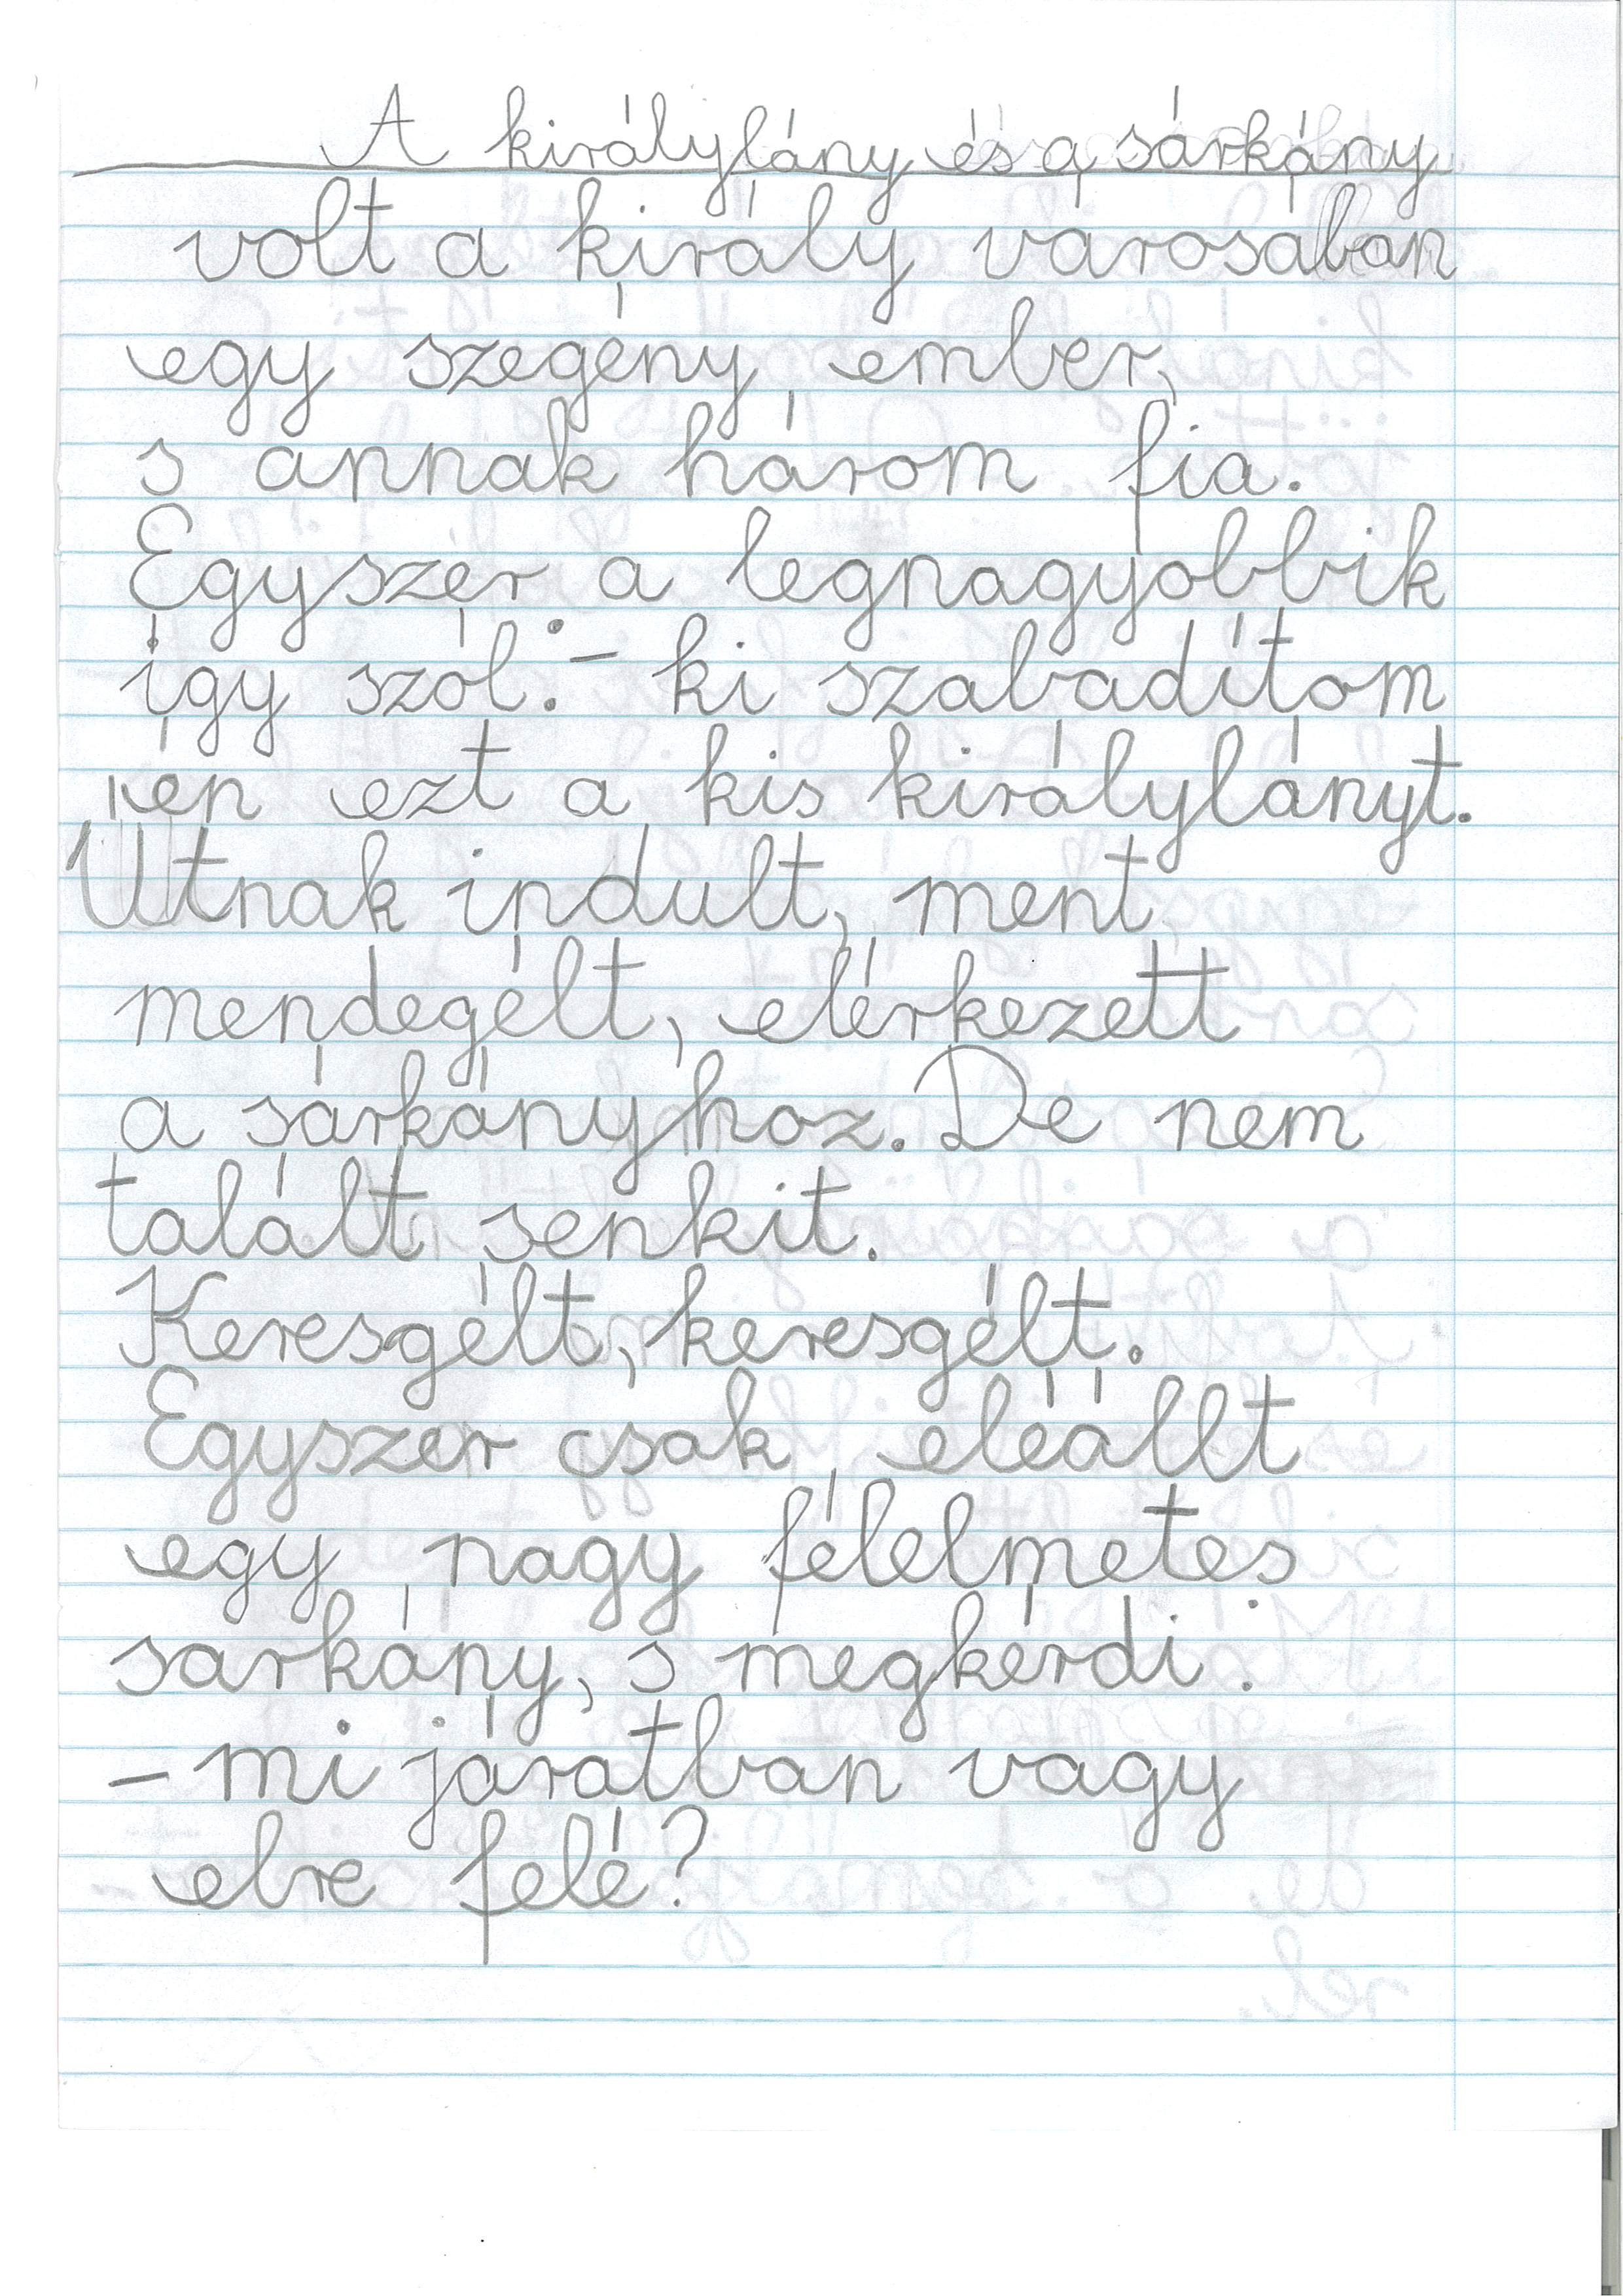 A királylány és a sárkány
volt a király városában
egy szegény ember,
s annak három fia.
Egyszer a legnagyobbik
így szól: - ki szabadítom
én ezt a kis királylányt.
Útnak indult, ment
mendegélt, elérkezett
a sárkányhoz. De nem
talált senkit.
Keresgélt, keresgélt.
Egyszer csak eléállt
egy nagy félelmetes
sárkány, s megkérdi:
- mi járatban vagy
ebre felé?